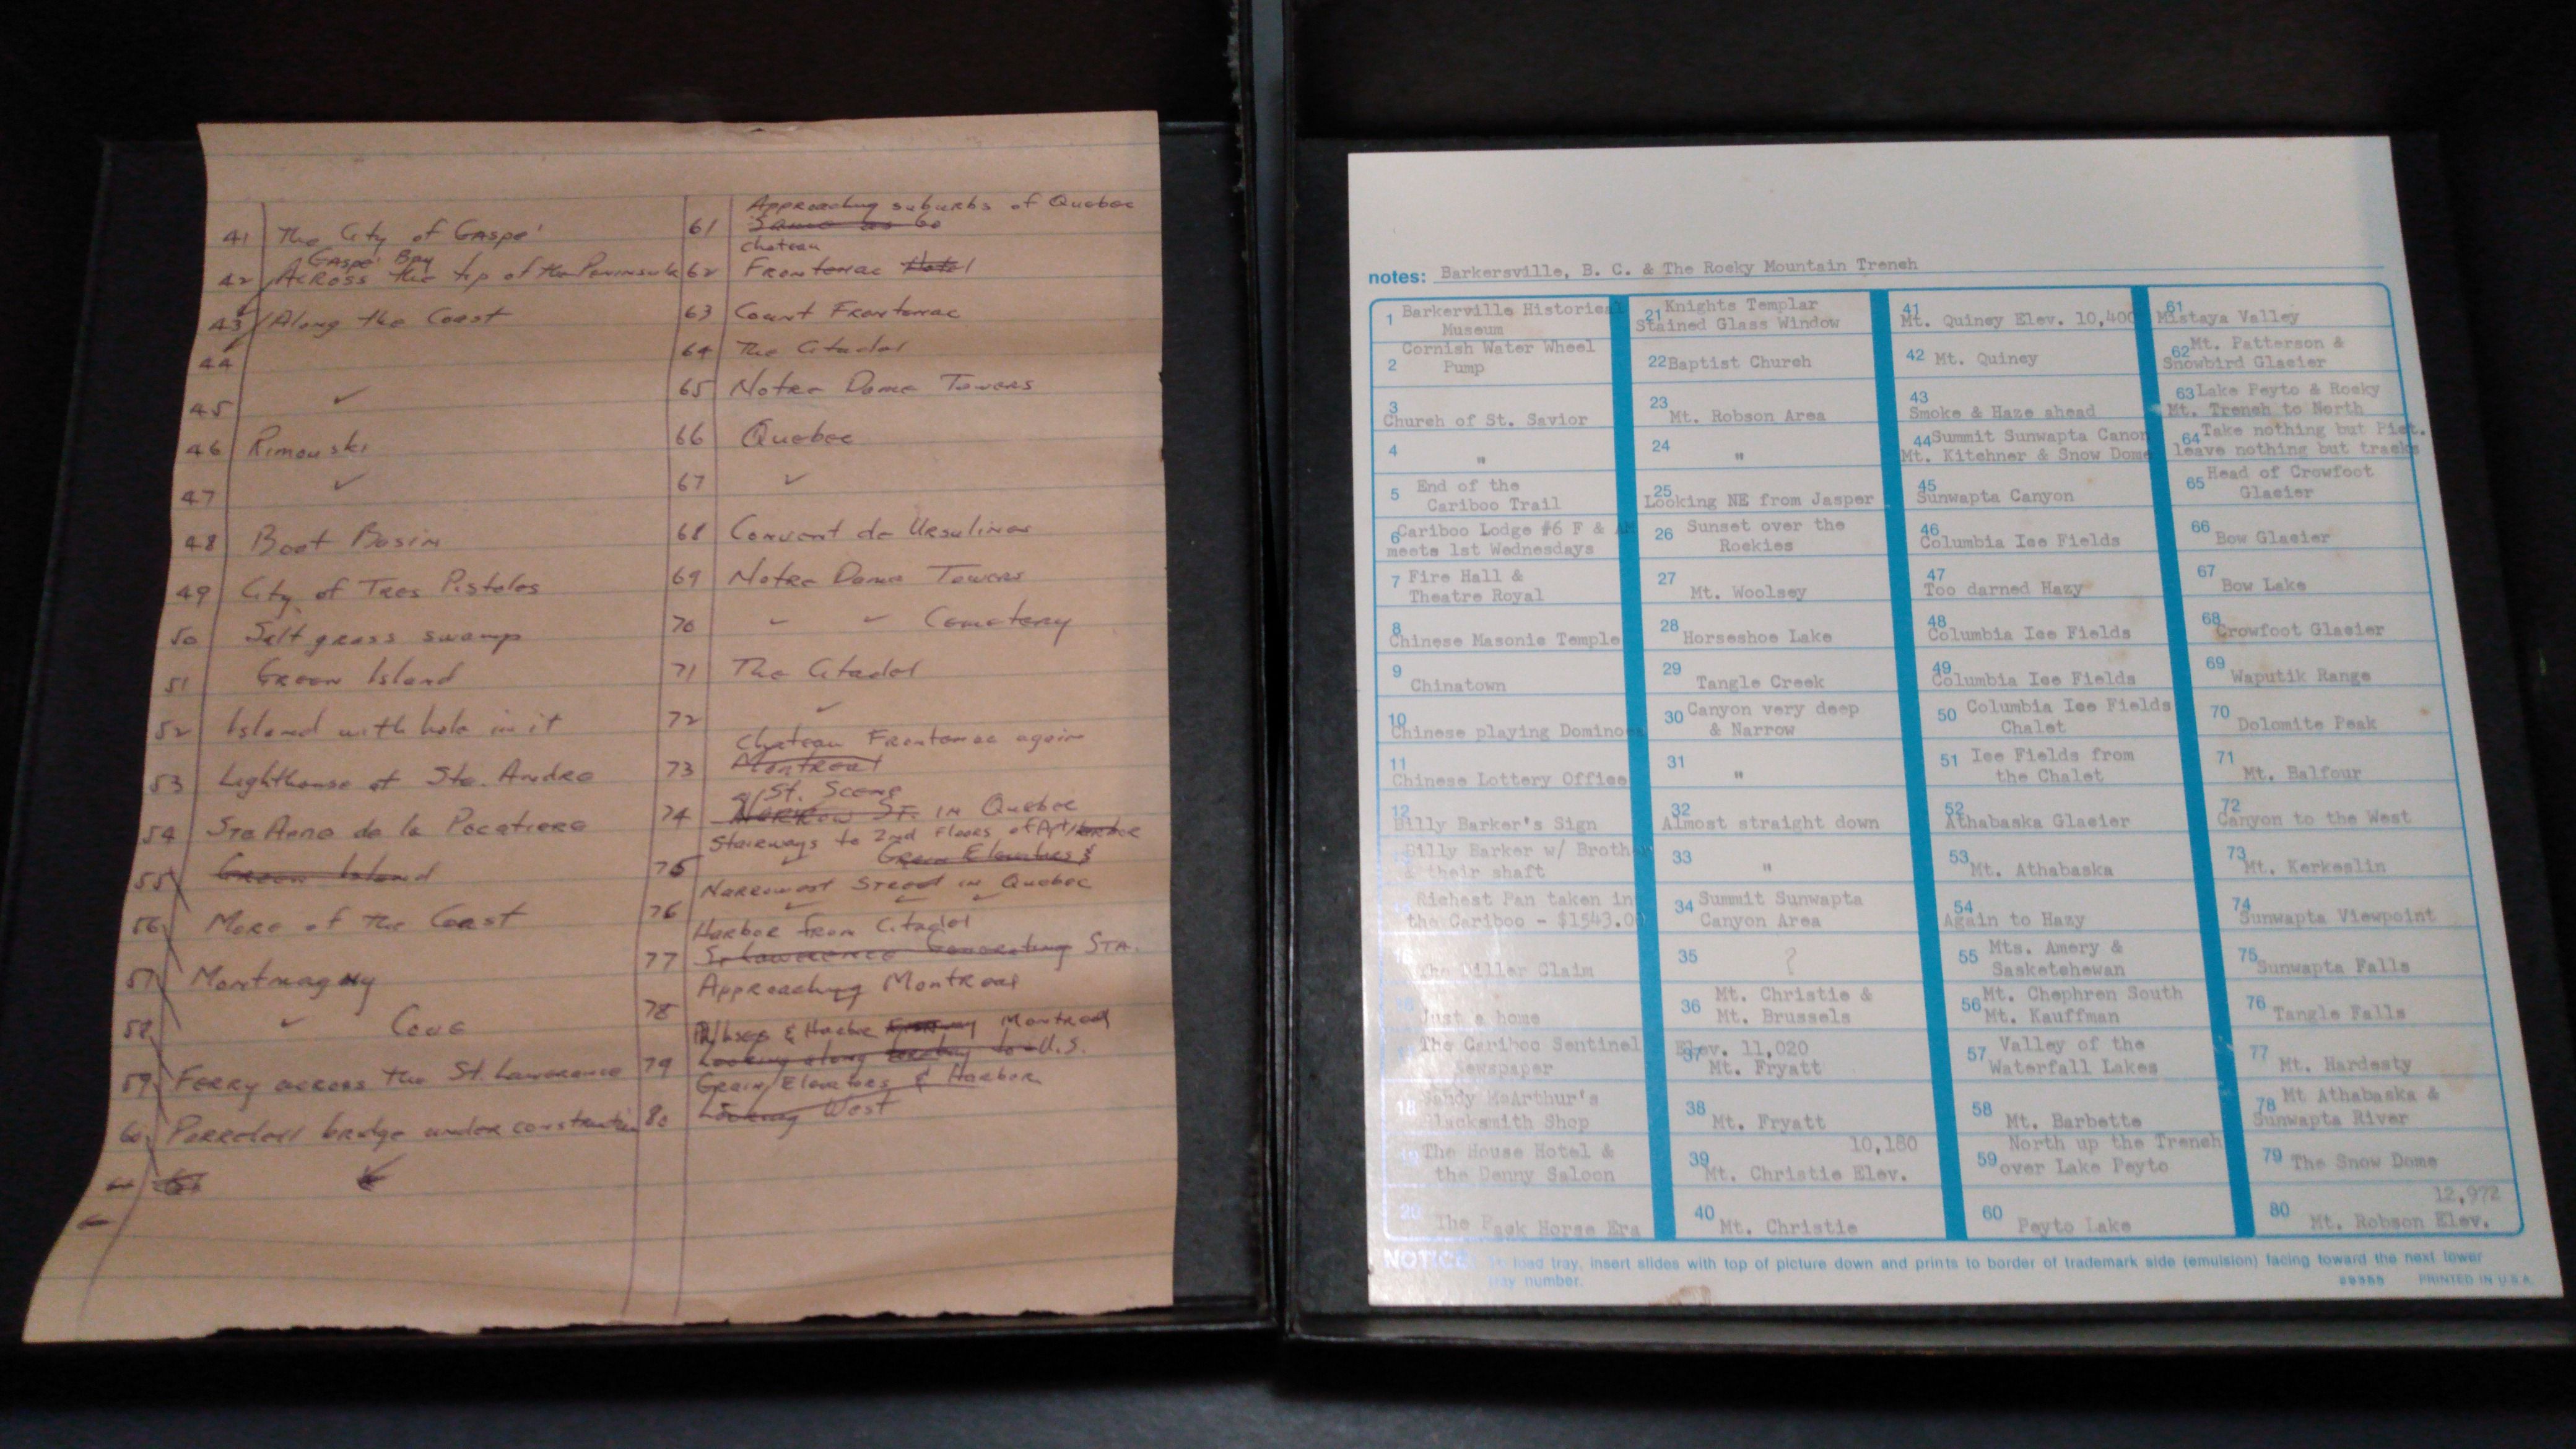 41 The City of Gaspe'
Gaspe' Bay
42 Across the tip of the Peninsula
43 Along the Coast
44
45 ✓
46 Rimouski
47 ✓
48 Boat Basin
49 City of Tres Pistoles
50 Salt grass swamp
51 Green Island
52 Island with hole in it
53 Lighthouse at Ste. Andre
54 Ste Anne de la Pocatiere
55 Green Island
56 More of the Coast
57 Montmagny
58 ✓ Cove
59 Ferry across the St. Lawerance
60 bridge under construction
Approaching suburbs of Quebec
61 Same as 60
Chateau
62 Frontenac Hotel
63 Count Frontenac
64 The Citadel
65 Notre Dame Towers
66 Quebec
67 ✓
68 Convent de Ursulines
69 Notre Dame Towers
70 ✓ ✓ Cemetery
71 The Citadel
72 ✓
Chateau Frontenac again
73 Montreal
St. Scene
74 Narrow St. in Quebec
Stairways to 2nd Floors of Apt/
75 ✓ Grain Elevators &
Narrowest Street in Quebec
76 ✓ ✓ ✓
Harbor from Citadel
77 St Lawerence Generating Sta.
Approaching Montreal
78
& Harbor Montreal
79 Looking along to U.S.
Grain Elevators & Harbor
80 Looking West
notes: Barkersville, B. C. & The Rocky Mountain Trench
1 Barkerville Historical
Museum
2 Cornish Water Wheel
Pump
3 Church of St. Savior
4 "
5 End of the
Cariboo Trail
6 Cariboo Lodge #6 F & AM
meets 1st Wednesdays
7 Fire Hall &
Theatre Royal
8 Chinese Masonic Temple
9 Chinatown
10 Chinese playing Dominoes
11 Chinese Lottery Office
12 Billy Barker's Sign
Billy Barker w/ Brother
& their shaft
Richest Pan taken in
the Cariboo - $1543.00
The Diller Claim
16 Just a home
The Cariboo Sentinel
Newspaper
18 Sandy McArthur's
Blacksmith Shop
19 The House Hotel &
the Denny Saloon
20 The Pack Horse Era
21 Knights Templar
Stained Glass Window
22 Baptist Church
23 Mt. Robson Area
24 "
25 Looking NE from Jasper
26 Sunset over the
Rockies
27 Mt. Woolsey
28 Horseshoe Lake
29 Tangle Creek
30 Canyon very deep
& Narrow
31 "
32 Almost straight down
33 "
34 Summit Sunwapta
Canyon Area
35 ?
36 Mt. Christie &
Mt. Brussels
37 Elev. 11,020
Mt. Fryatt
38 Mt. Fryatt
39 10,180
Mt. Christie Elev.
40 Mt. Christie
41 Mt. Quiney Elev. 10,400
42 Mt. Quiney
43 Smoke & Haze ahead
44 Summit Sunwapta Canon
Mt. Kitchner & Snow Dome
45 Sunwapta Canyon
46 Columbia Ice Fields
47 Too darned Hazy
48 Columbia Ice Fields
49 Columbia Ice Fields
50 Columbia Ice Fields
Chalet
51 Ice Fields from
the Chalet
52 Athabaska Glacier
53 Mt. Athabaska
54 Again to Hazy
55 Mts. Amery &
Sasketchewan
56 Mt. Chephren South
Mt. Kauffman
57 Valley of the
Waterfall Lakes
58 Mt. Barbette
59 North up the Trench
over Lake Peyto
60 Peyto Lake
61 Mistaya Valley
62 Mt. Patterson &
Snowbird Glacier
63 Lake Peyto & Rocky
Mt. Trench to North
64 Take nothing but Pict.
leave nothing but tracks
65 Head of Crowfoot
Glacier
66 Bow Glacier
67 Bow Lake
68 Crowfoot Glacier
69 Waputik Range
70 Dolomite Peak
71 Mt. Balfour
72 Canyon to the West
73 Mt. Kerkeslin
74 Sunwapta Viewpoint
75 Sunwapta Falls
76 Tangle Falls
77 Mt. Hardesty
78 Mt Athabaska &
Sunwapta River
79 The Snow Dome
80 12,972
Mt. Robson Elev.
NOTICE: To load tray, insert slides with top of picture down and prints to border of trademark side (emulsion) facing toward the next lower
tray number.
PRINTED IN U.S.A.